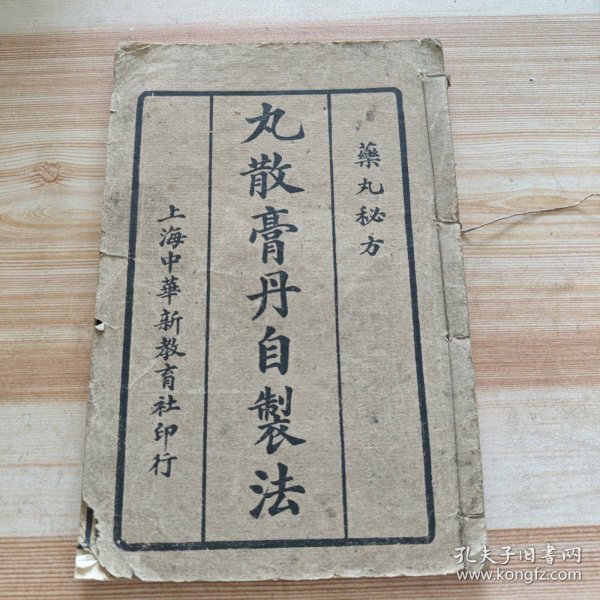 藥丸秘方
丸散膏丹自製法
上海中華新教育社印行
孔夫子旧书网
www.kongfz.com